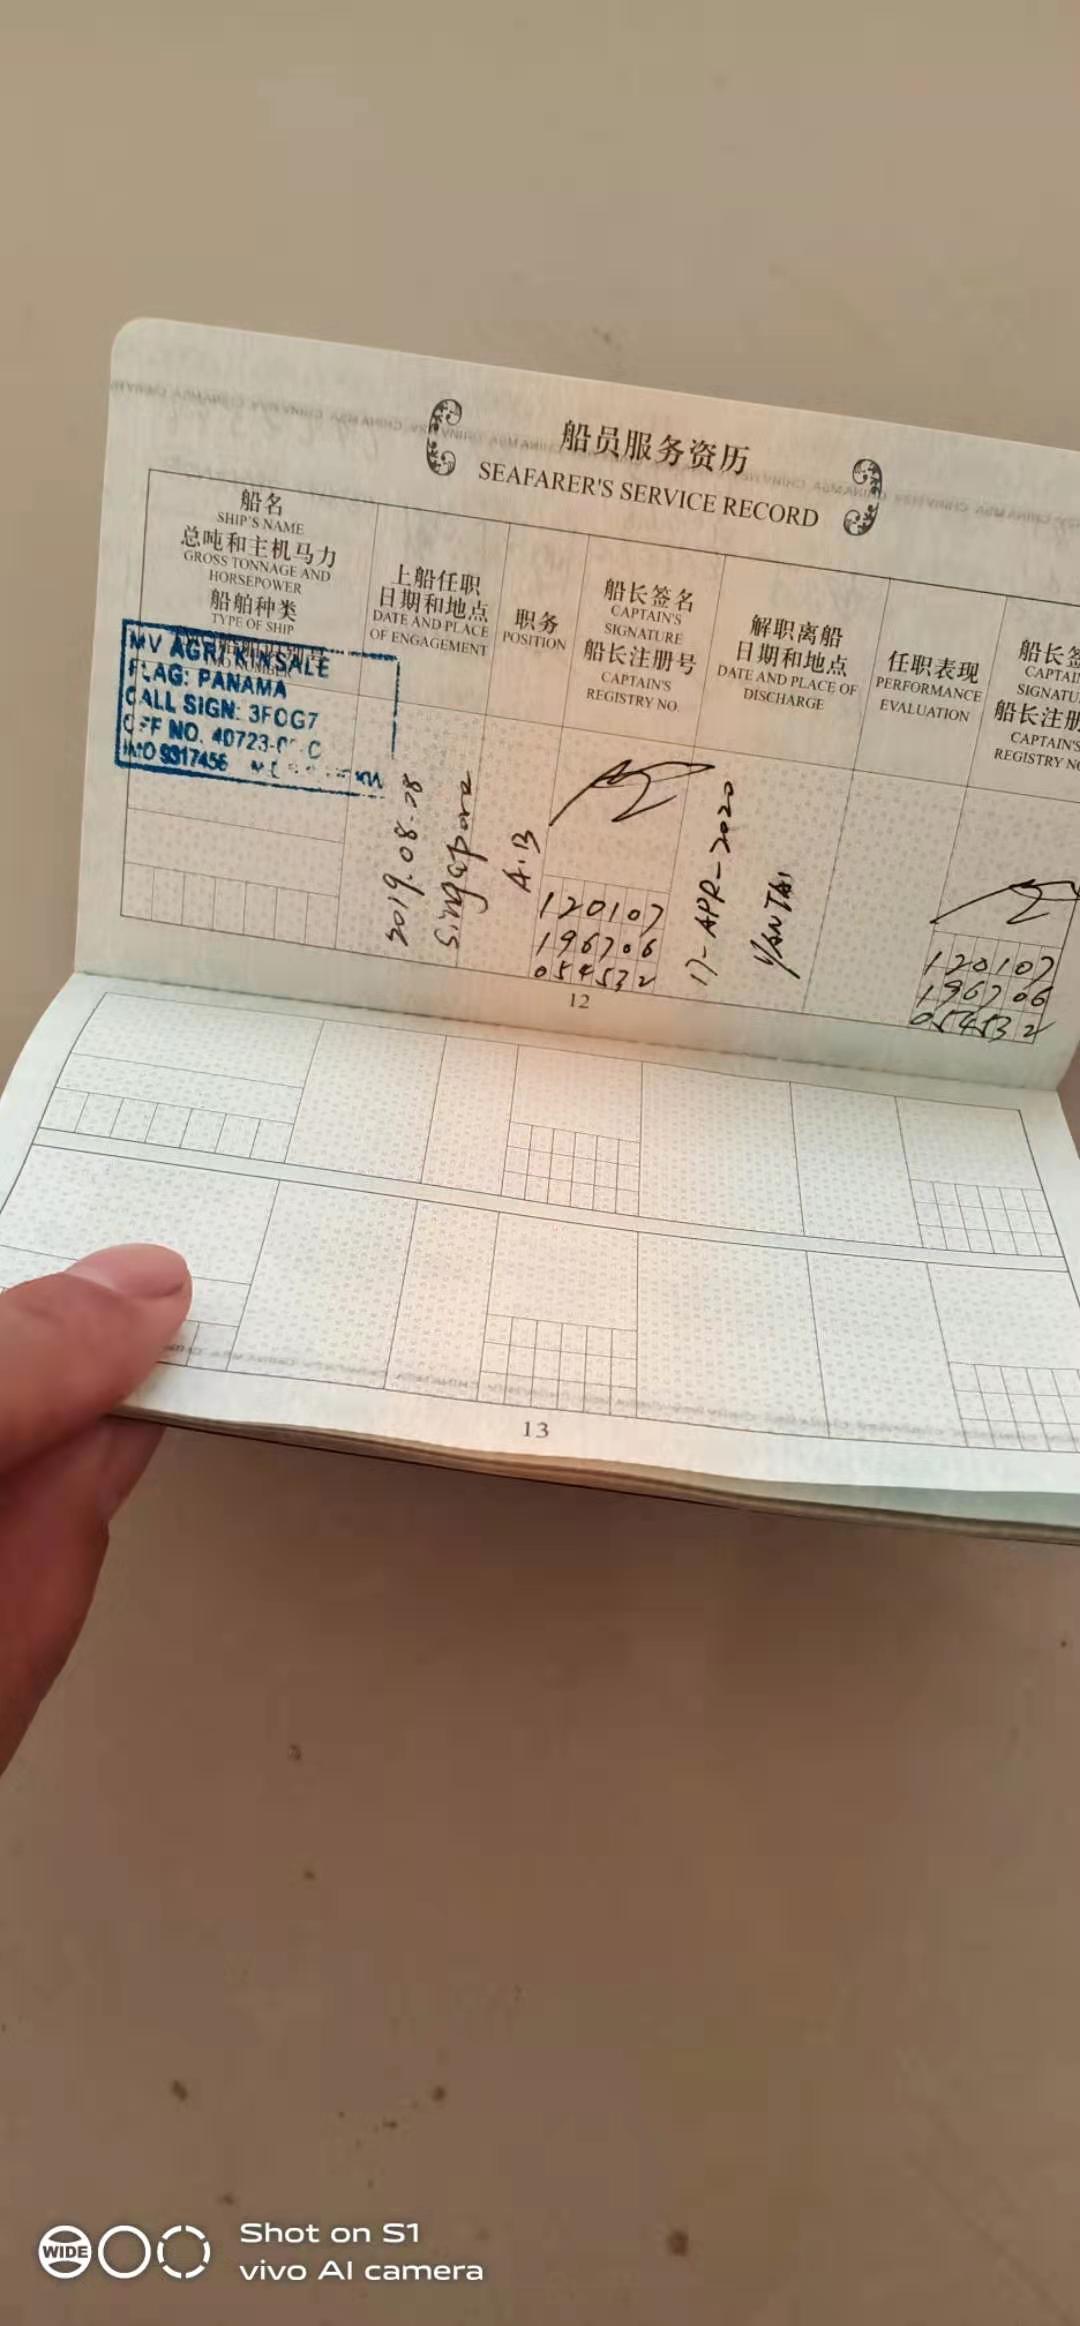 船员服务资历
SEAFARER'S SERVICE RECORD
船名
SHIP'S NAME
总吨和主机马力
GROSS TONNAGE AND
HORSEPOWER
船舶种类
TYPE OF SHIP
上船任职
日期和地点
DATE AND PLACE
OF ENGAGEMENT
职务
POSITION
船长签名
CAPTAIN'S
SIGNATURE
船长注册号
CAPTAIN'S
REGISTRY NO.
解职离船
日期和地点
DATE AND PLACE OF
DISCHARGE
任职表现
PERFORMANCE
EVALUATION
船长签
CAPTAIN
SIGNATU
船长注册
CAPTAIN'S
REGISTRY NO
MV AGRI KINSALE
FLAG: PANAMA
CALL SIGN: 3FOG7
OFF NO. 40723
IMO 9317456
2019.08.28
Singapore
A.B
120107
196706
054532
17-APR-2020
YANTAI
120107
196706
054532
12
13
WIDE
Shot on S1
vivo AI camera